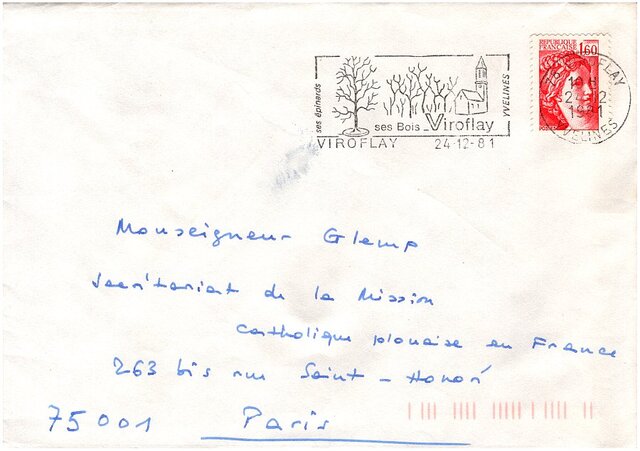 REPUBLIQUE
FRANCAISE 1,60
ses épinards
YVELINES
ses Bois_Viroflay
VIROFLAY 24-12-81
VIROFLAY
24-12
1981
YVELINES
Monseigneur Glemp
Secrétariat de la Mission
Catholique plonaise en France
263 bis rue Saint-Honoré
75001 Paris